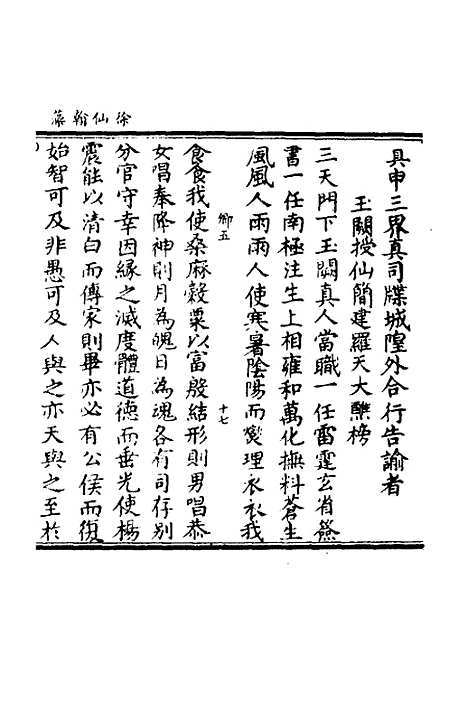 徐仙翰藻
具申三界真司牒城隍外合行告諭者
玉闕授仙簡建羅天大醮榜
三天門下玉闕真人當職一任雷霆玄省僉
書一任南極注生上相雍和萬化撫料蒼生
風風人雨雨人使寒暑陰陽而爕理衣衣我
卿五
十七
食食我使桑麻穀粟以富殷結形則男唱恭
女唱奉降神則月為魄日為魂各有司存別
分官守幸因緣之滅度體道德而垂光使楊
震能以清白而傳家則畢亦必有公侯而復
始智可及非愚可及人與之亦天與之至於